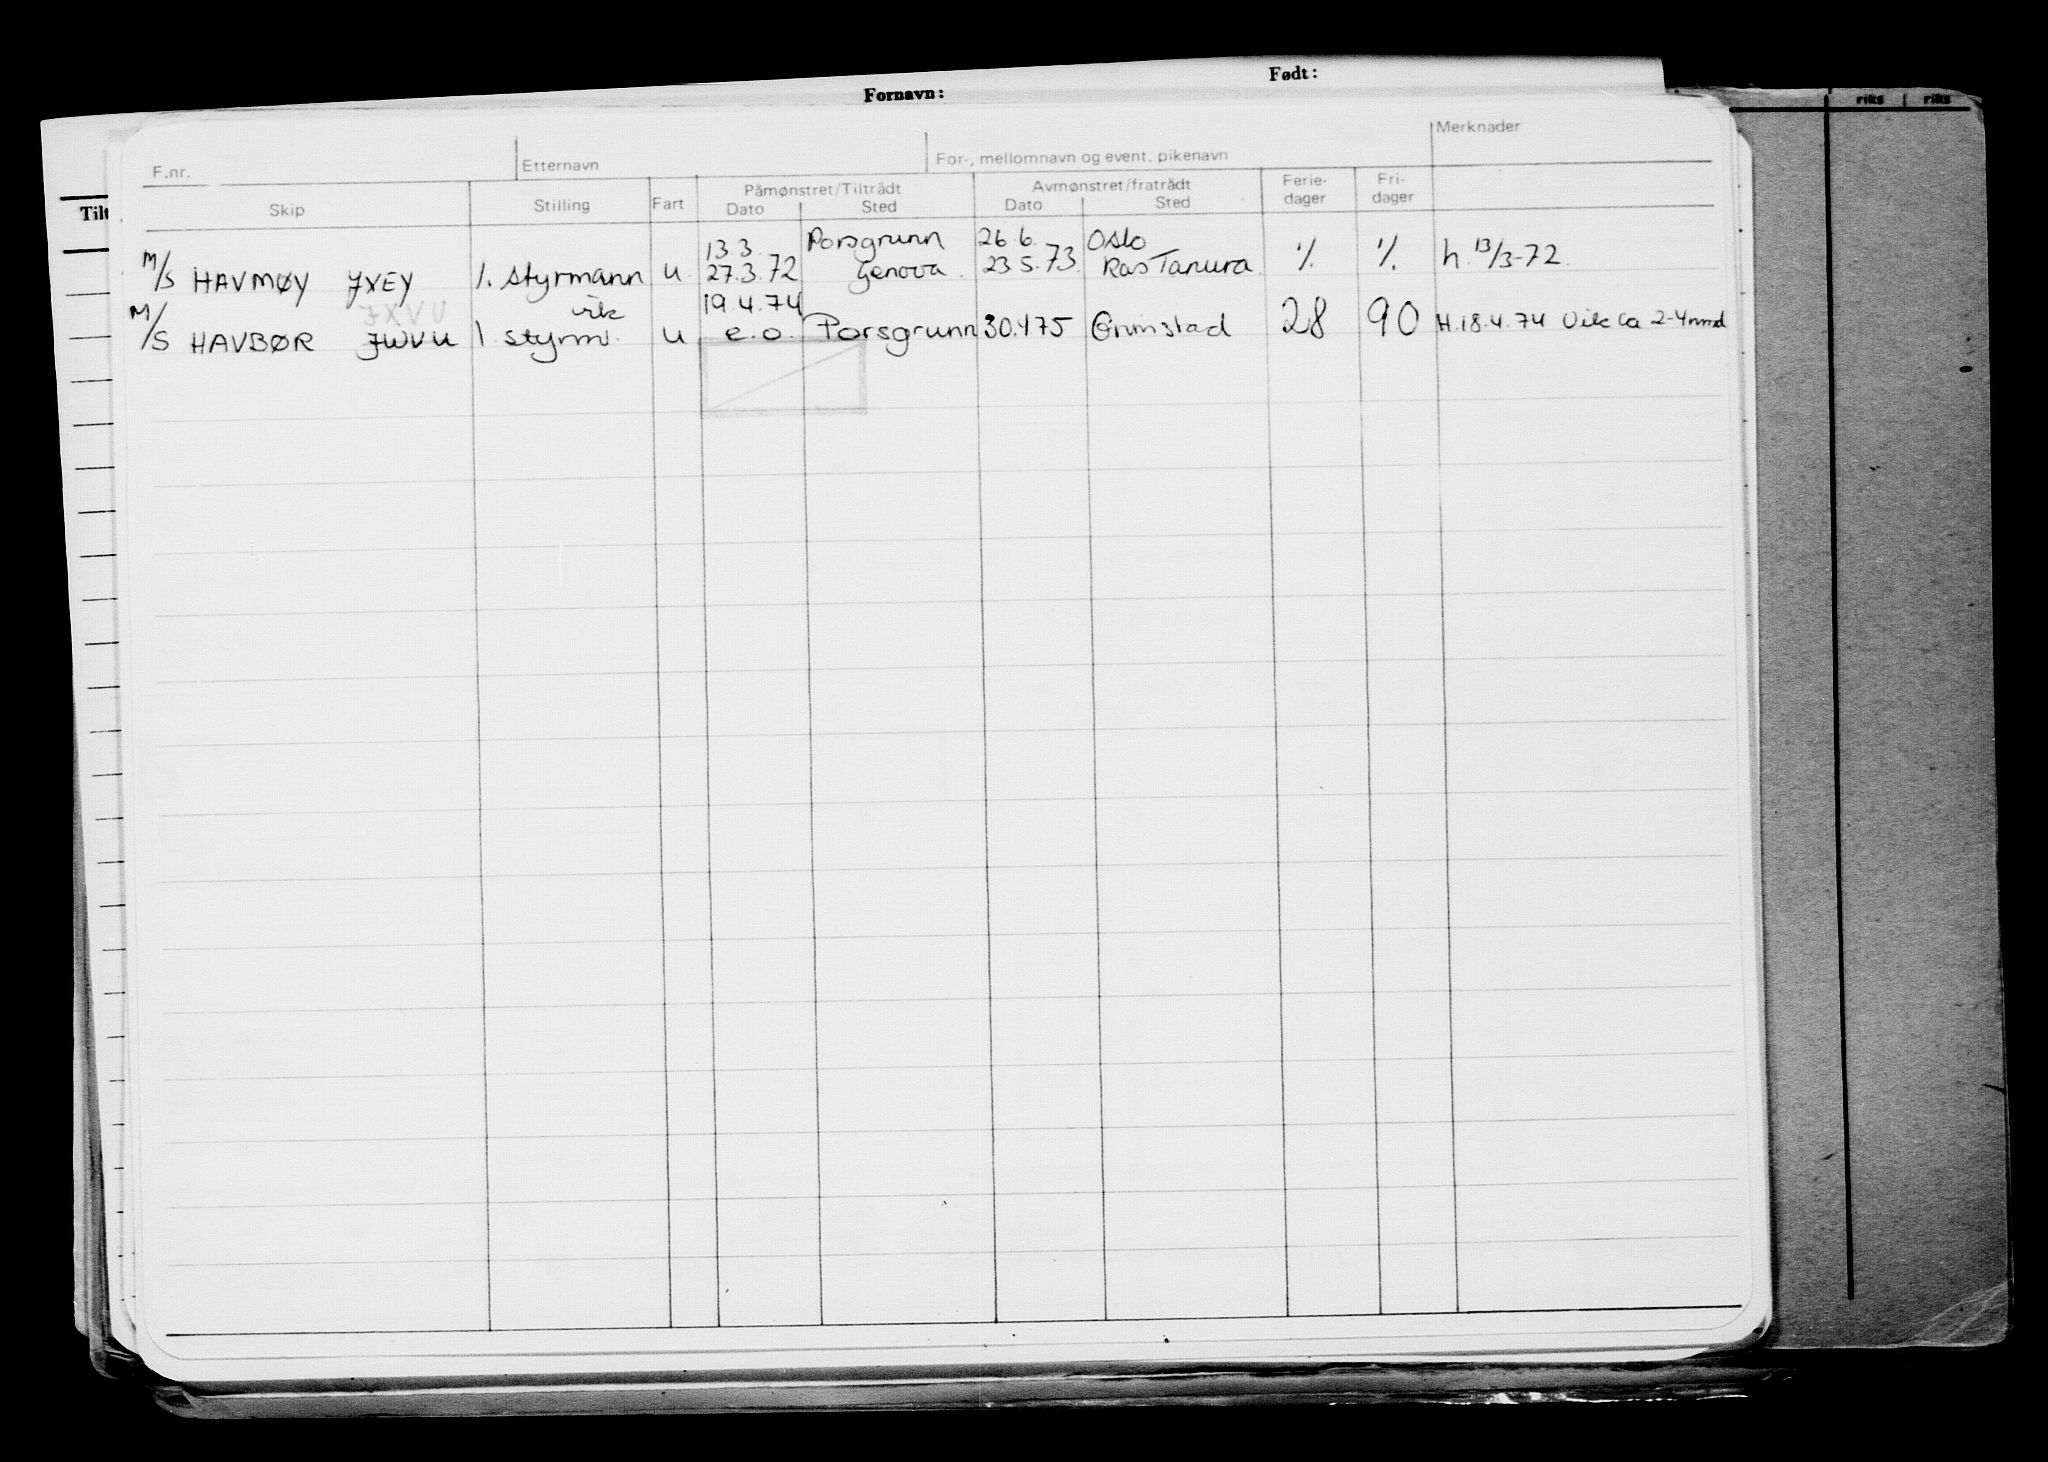 Født:
Fornavn:
riks riks
Merknader
F.nr. Etternavn For-, mellomnavn og event. pikenavn
Tilt
Skip Stilling Fart Påmønstret/Tiltrådt Avmønstret/fratrådt Ferie- Fri-
Dato Sted Dato Sted dager dager
13.3. Porsgrunn 26.6. Oslo
M/S HAVMØY JXEY 1. styrmann u 27.3.72 Genova. 23.5.73. Ras Tanura. % % h. 13/3-72.
JXVU vik 19.4.74
M/S HAVBØR JWVU 1 styrm. u e.o. Porsgrunn 30.475 Grimstad 28 90 H.18.4.74 Vik ca 2-4mnd